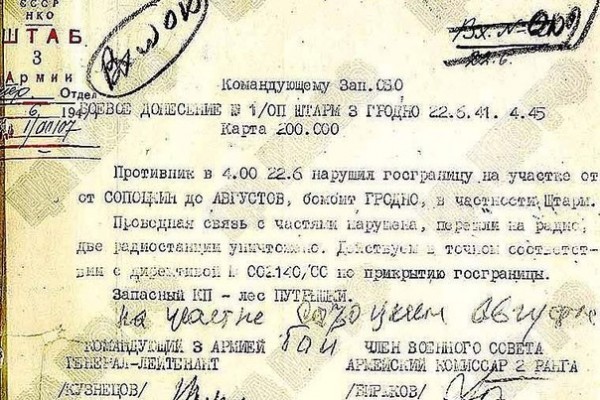 СССР
НКО
ШТАБ
3
Армии
Отдел
6 194
№ 1/оп/07
Вх. №
22.6.
Командующему Зап.ОВО
БОЕВОЕ ДОНЕСЕНИЕ № 1/ОП ШТАРМ 3 ГРОДНО 22.6.41. 4.45
Карта 200.000
Противник в 4.00 22.6 нарушил госграницу на участке от
от СОПОЦКИН до АВГУСТОВ, бомбит ГРОДНО, в частности Штарм.
Проводная связь с частями нарушена, перешли на радио,
две радиостанции уничтожено. Действуем в точном соответст-
вии с директивой № 002140/СС по прикрытию госграницы.
Запасный КП - лес ПУТРИШКИ.
на участке
КОМАНДУЮЩИЙ 3 АРМИЕЙ ЧЛЕН ВОЕННОГО СОВЕТА
ГЕНЕРАЛ-ЛЕЙТЕНАНТ АРМЕЙСКИЙ КОМИССАР 2 РАНГА
/КУЗНЕЦОВ/ /БИРЮКОВ/